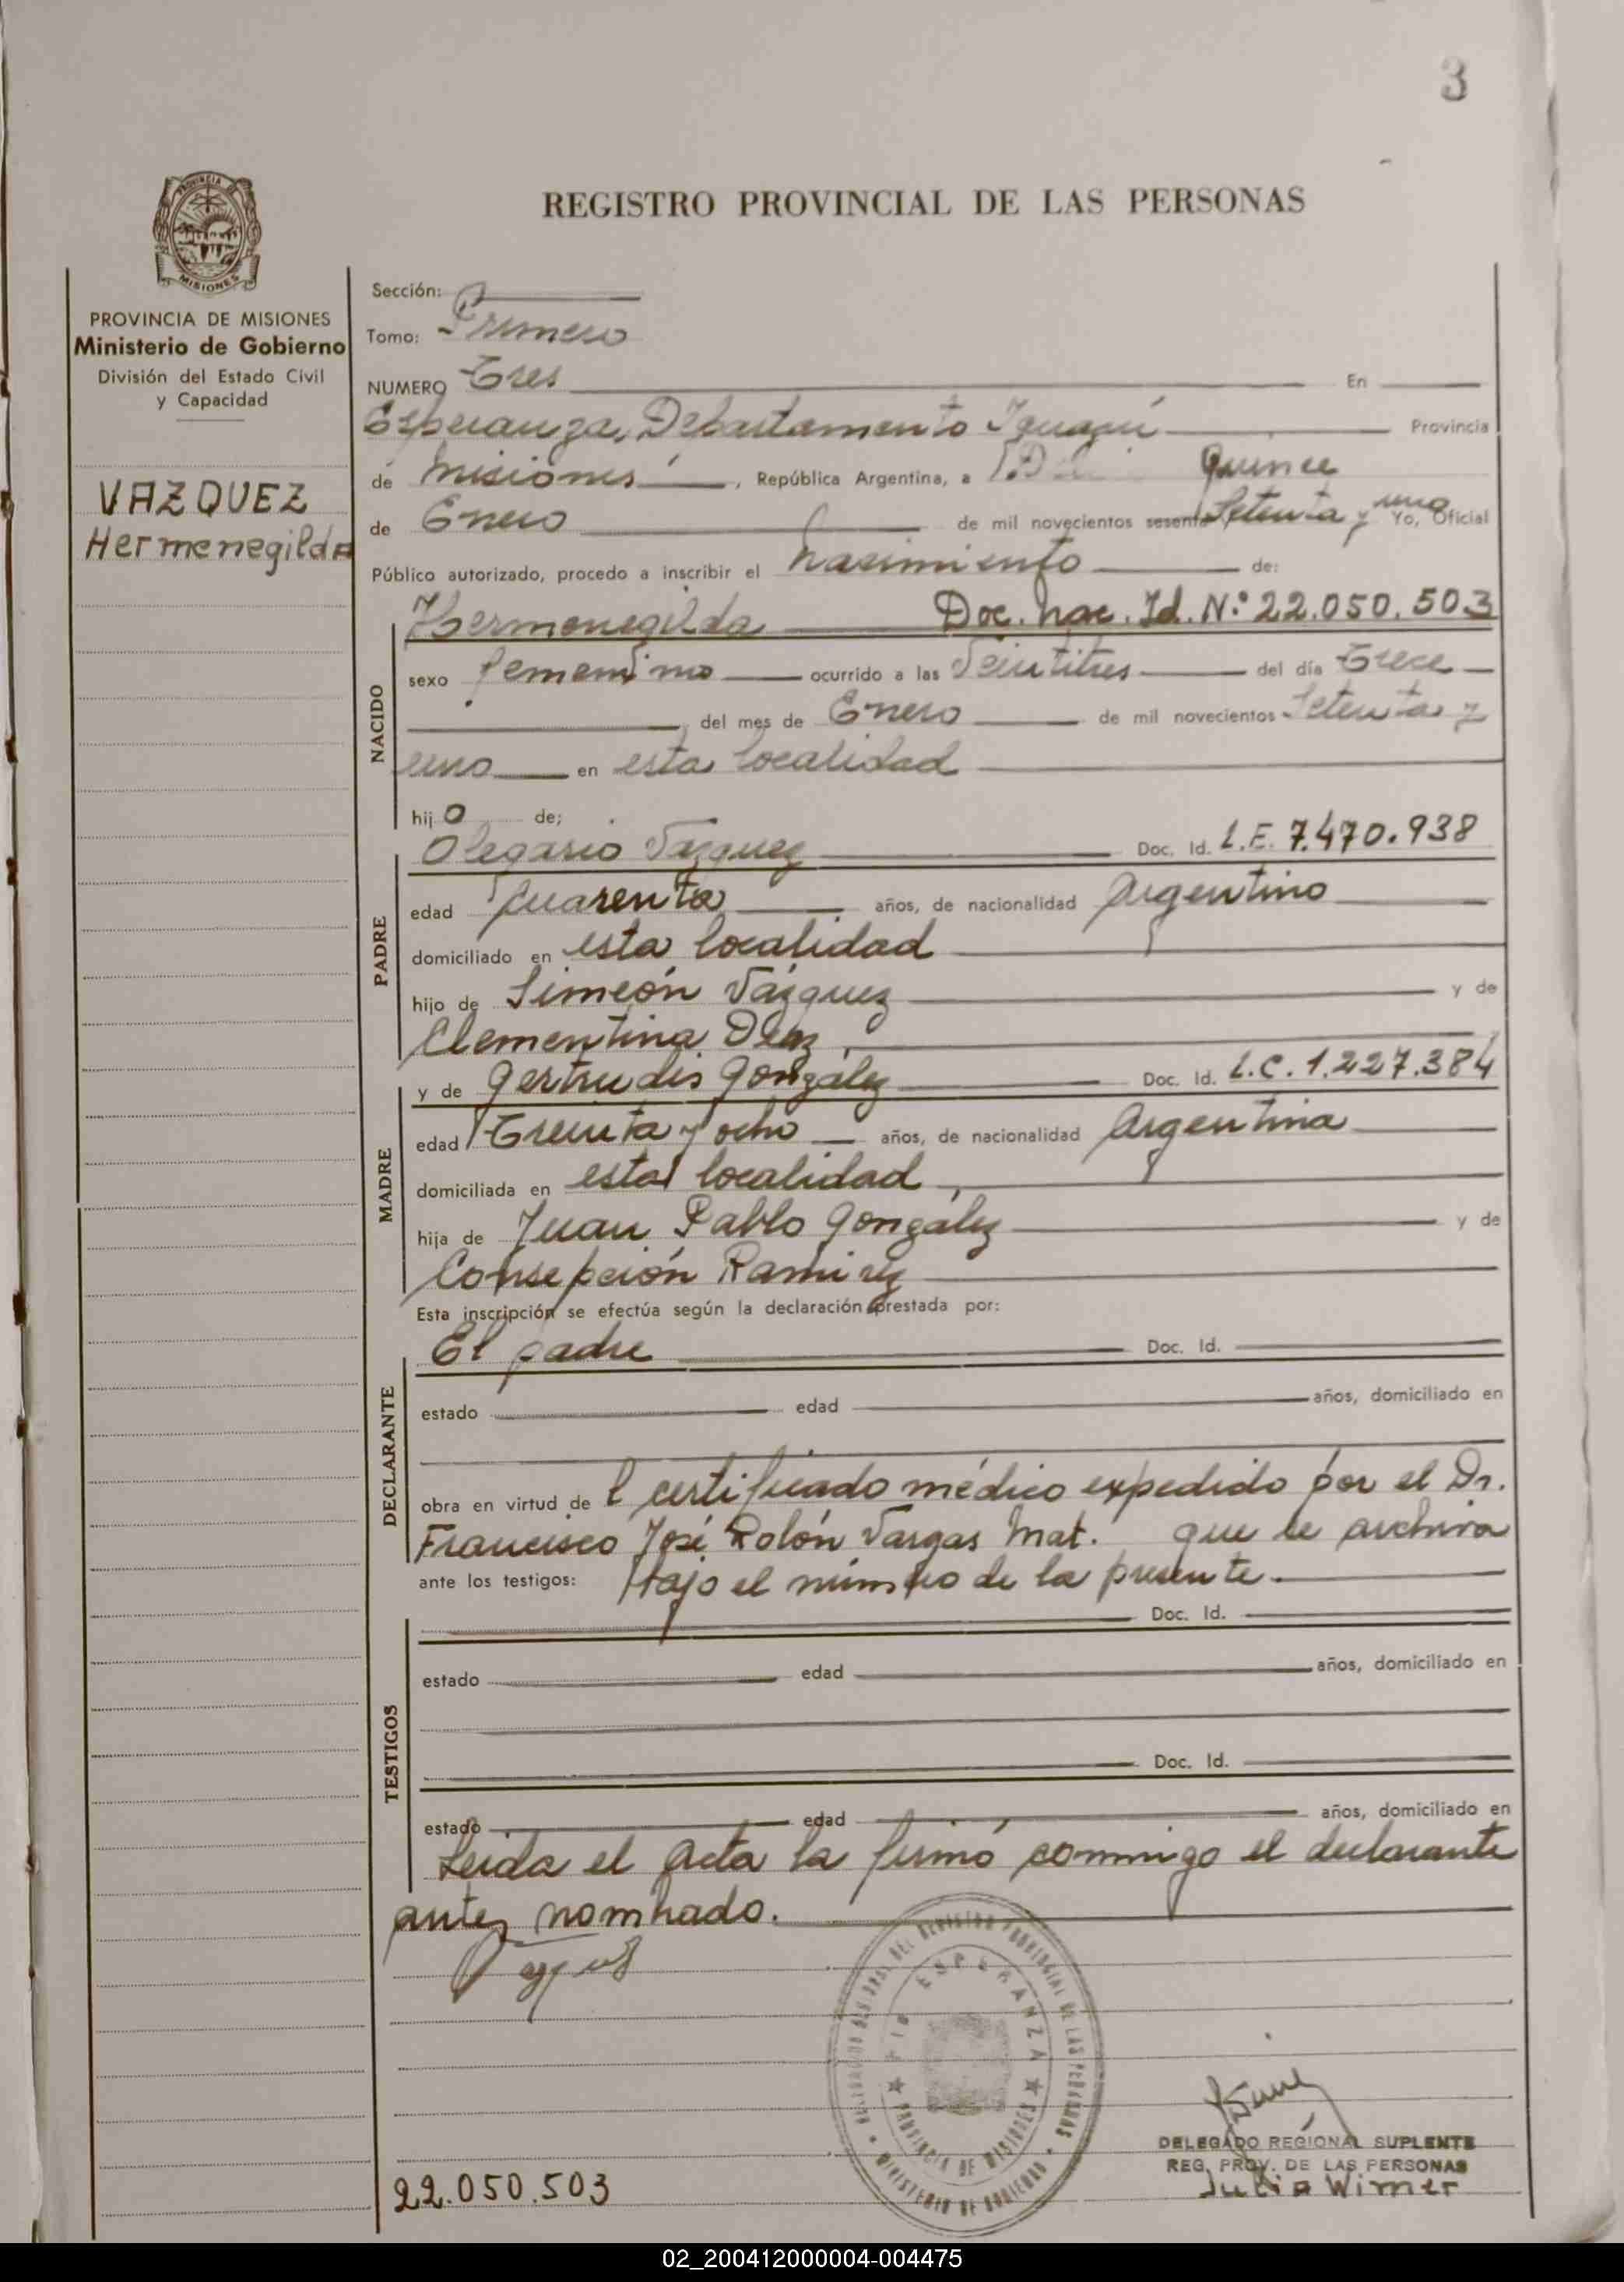 3
PROVINCIA DE
MISIONES
REGISTRO PROVINCIAL DE LAS PERSONAS
PROVINCIA DE MISIONES
Ministerio de Gobierno
División del Estado Civil
y Capacidad
VAZQUEZ
Hermenegilda
Sección:
Tomo: Primero
NUMERO Tres En
Esperanza, Departamento Iguazú Provincia
de Misiones, República Argentina, a Quince
de Enero de mil novecientos sesenta Setenta y uno Yo, Oficial
Público autorizado, procedo a inscribir el nacimiento de:
NACIDO
Hermenegilda Doc. Nac. Id. N.º 22.050.503
sexo femenino ocurrido a las Veintitres del día Trece
del mes de Enero de mil novecientos Setenta y
uno en esta localidad
hijo de;
PADRE
Olegario Vázquez Doc. Id. L.E. 7.470.938
edad Cuarenta años, de nacionalidad Argentino
domiciliado en esta localidad
hijo de Simeón Vázquez y de
Clementina Díaz
MADRE
y de Gertrudis González Doc. Id. L.C. 1.227.384
edad Treinta y ocho años, de nacionalidad Argentina
domiciliada en esta localidad
hija de Juan Pablo González y de
Consepción Ramirez
Esta inscripción se efectúa según la declaración prestada por:
DECLARANTE
El padre Doc. Id.
estado edad años, domiciliado en
obra en virtud de l certificado médico expedido por el Dr.
Francisco José Rolón Vargas Mat. que se archiva
ante los testigos: bajo el número de la presente.
TESTIGOS
Doc. Id.
estado edad años, domiciliado en
Doc. Id.
estado edad años, domiciliado en
Leida el Acta la firmó conmigo el declarante
antes nombrado.
DEL REGISTRO PROVINCIAL DE LAS PERSONAS
ESPERANZA
PROVINCIA DE MISIONES
MINISTERIO DE GOBIERNO
DELEGADO REGIONAL SUPLENTE
REG. PROV. DE LAS PERSONAS
Julia Wimer
22.050.503
02_200412000004-004475